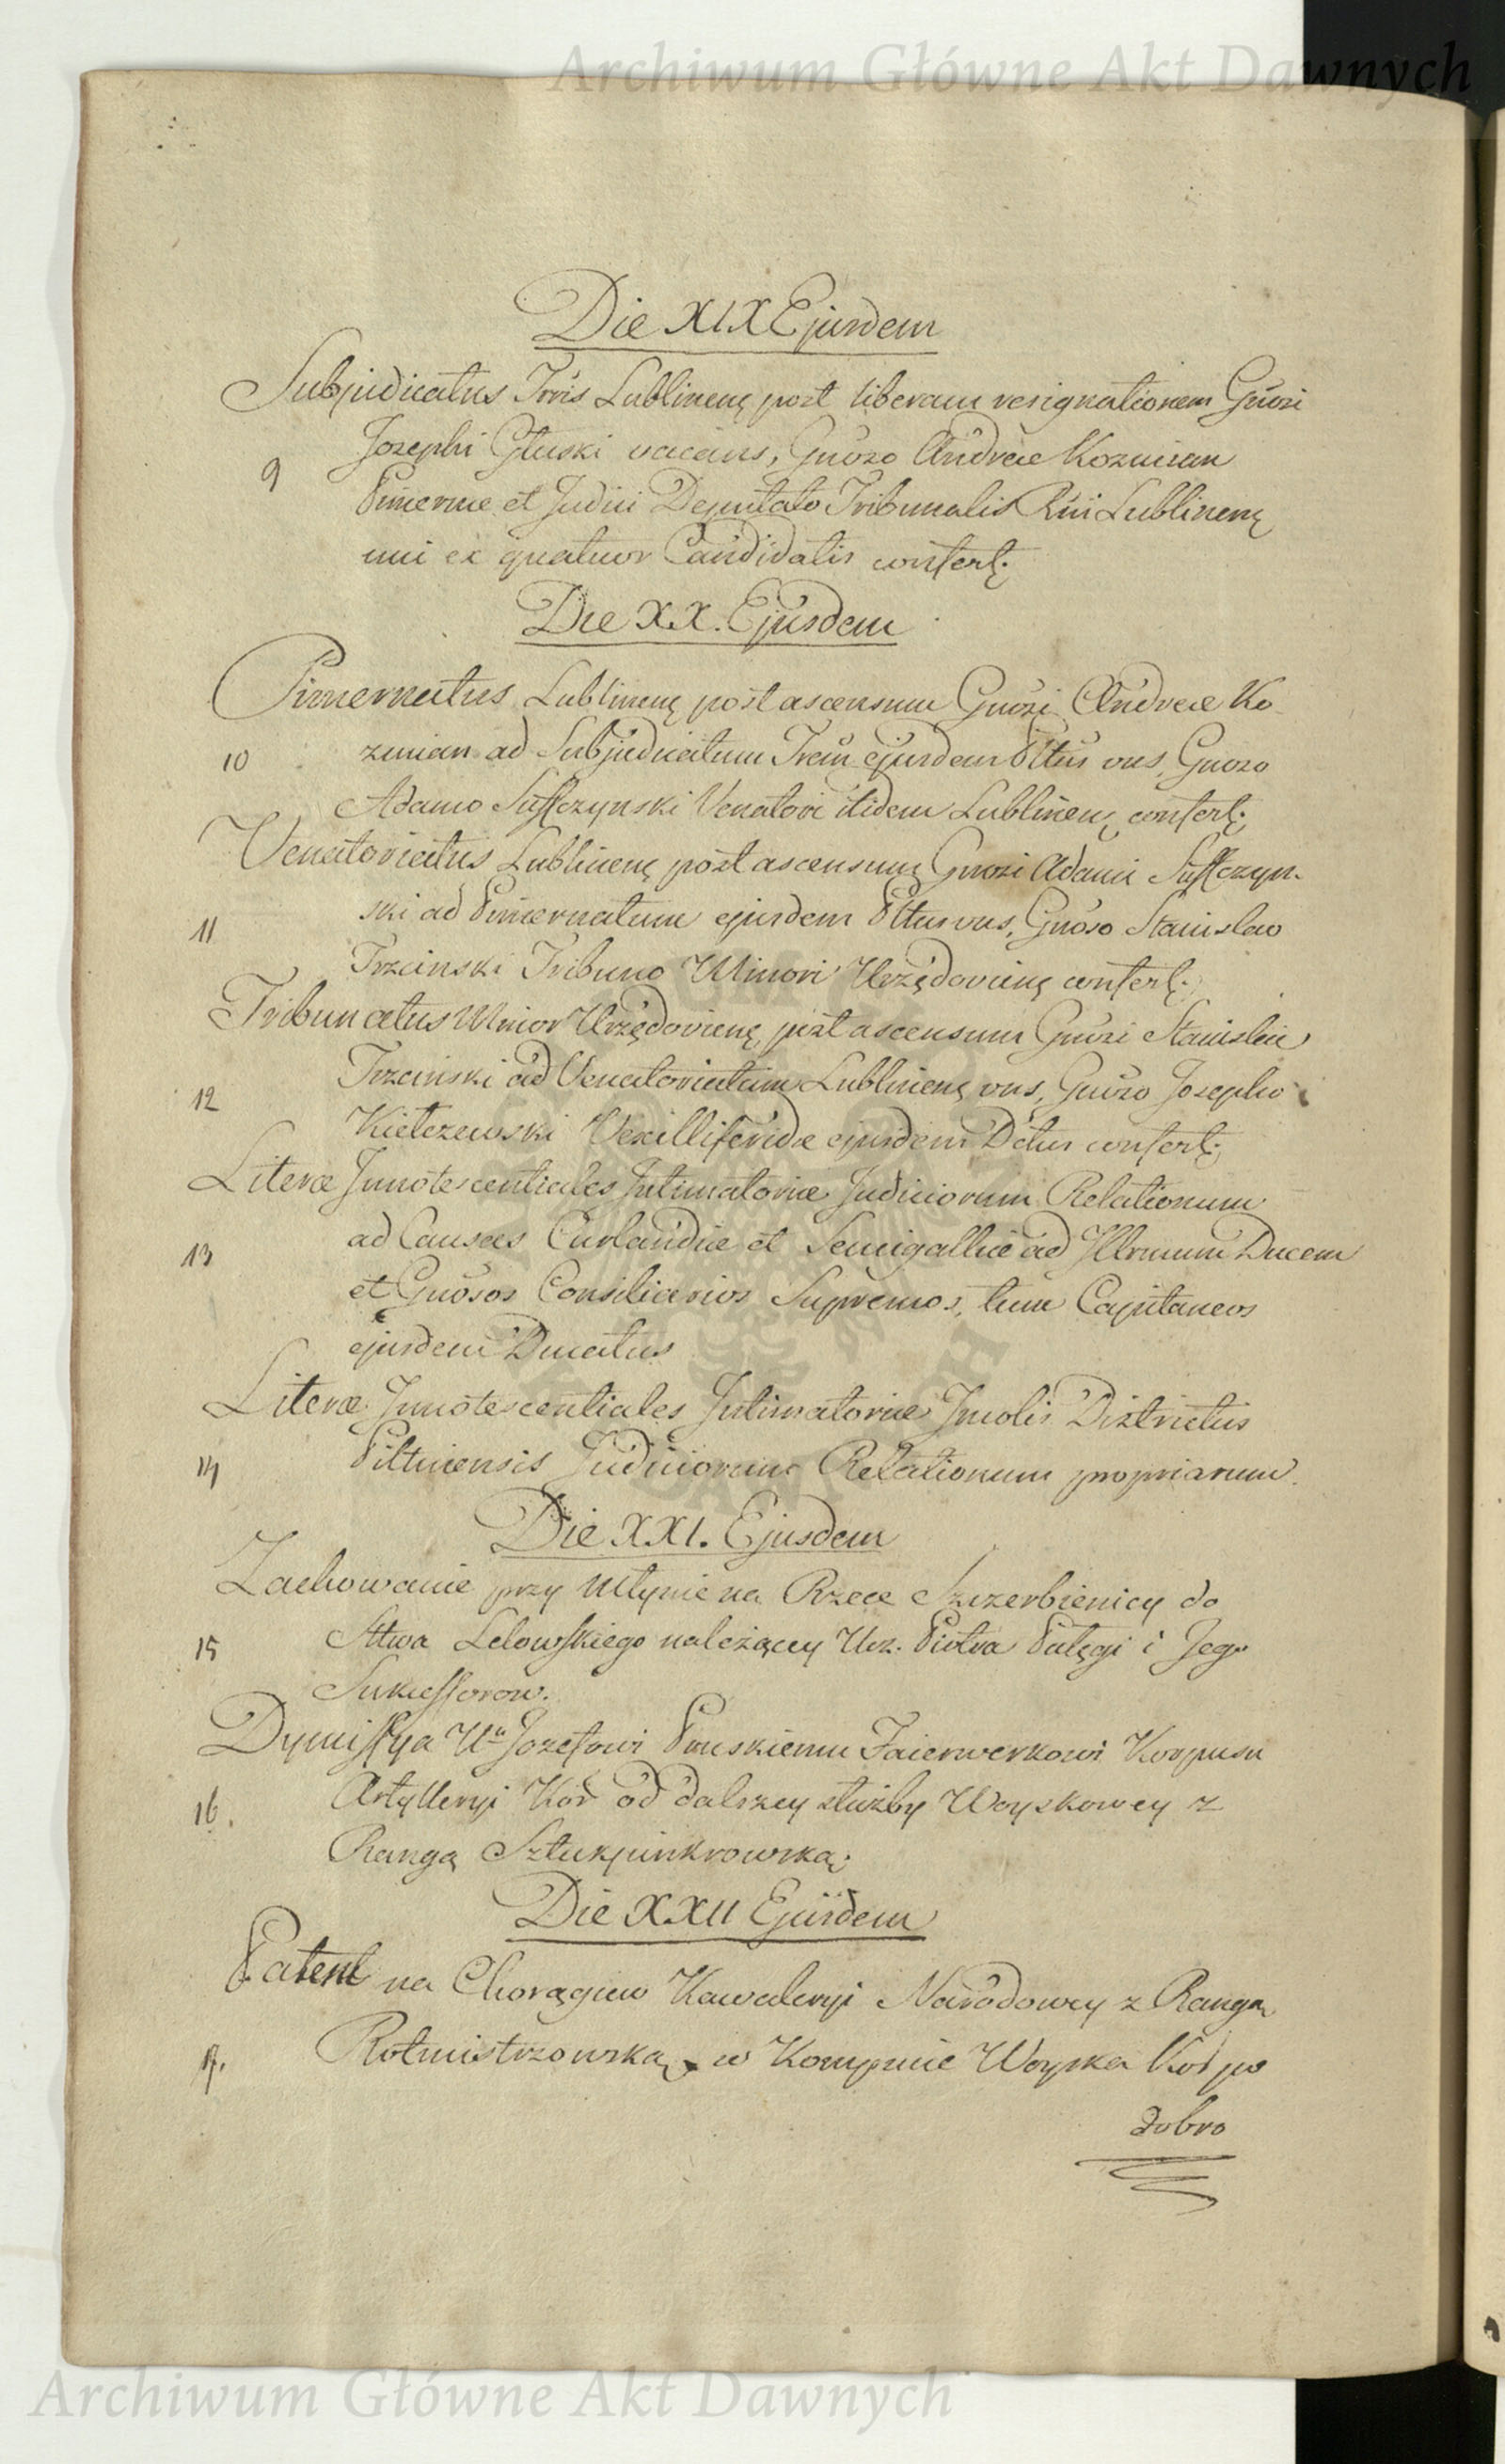 Archiwum Główne Akt Dawnych
Die XIX Ejusdem
Subjudicatus Trris Lublinenę post liberam resignationem Gnosi
Josephi Głuski vacans, Gnoso Andreæ Kozmian
9
Pincernæ et Judici Deputato Tribunalis Rni Lublinenę
uni ex quatuor Candidatis confertę.
Die XX. Ejusdem
Pincernatus Lublinenę post ascensum Gnosi Andreæ Ko
10
zmian ad Subjudicatum Trem ejusdem Pttus vns, Gnoso
Adamo Suffczynski Venatori itidem Lublinenę confertę.
Venatoriatus Lublinenę post ascensum Gnosi Adami Suffczyn-
ski ad Pincernatum ejusdem Pttus vns, Gnoso Stanislao
11
Trzcinski Tribuno Minori Urzędovienę confertę.
Tribunatus Minor Urzędovienę post ascensum Gnosi Stanislai
Trzcinski ad Venatoriatum Lublinenę vns, Gnoso Josepho
12
Kiełczewski Vexilliferidæ ejusdem Dctus confertę.
Literæ Innotescentiales Intimatoriæ Judiciorum Relationum
ad Causas Curlandiæ et Semigalliæ ad Illrmum Ducem
13
et Gnosos Consiliarios Supremos, tum Capitaneos
ejusdem Ducatus
Literæ Innotescentiales Intimatoriæ Incolis Districtus
14
Piltinensis Judiciorum Relationum propriarum.
Die XXI. Ejusdem
Zachowanie przy Młynie na Rzece Szczerbienicy do
15
Sttwa Lelowskiego należącey Ucz. Piotra Pałęgi i Jego
Sukcessorow.
Dymissya Ur Jozefowi Pruskiemu Faierwerkowi Korpusu
16.
Artylleryi Kor od dalszey służby Woyskowey z
Rangą Sztukjunkrowską.
Die XXII Ejusdem
Patent na Chorągiew Kawaleryi Narodowey z Rangą
17.
Rotmistrzowską w Kompucie Woyska Kor po
dobro
Archiwum Główne Akt Dawnych